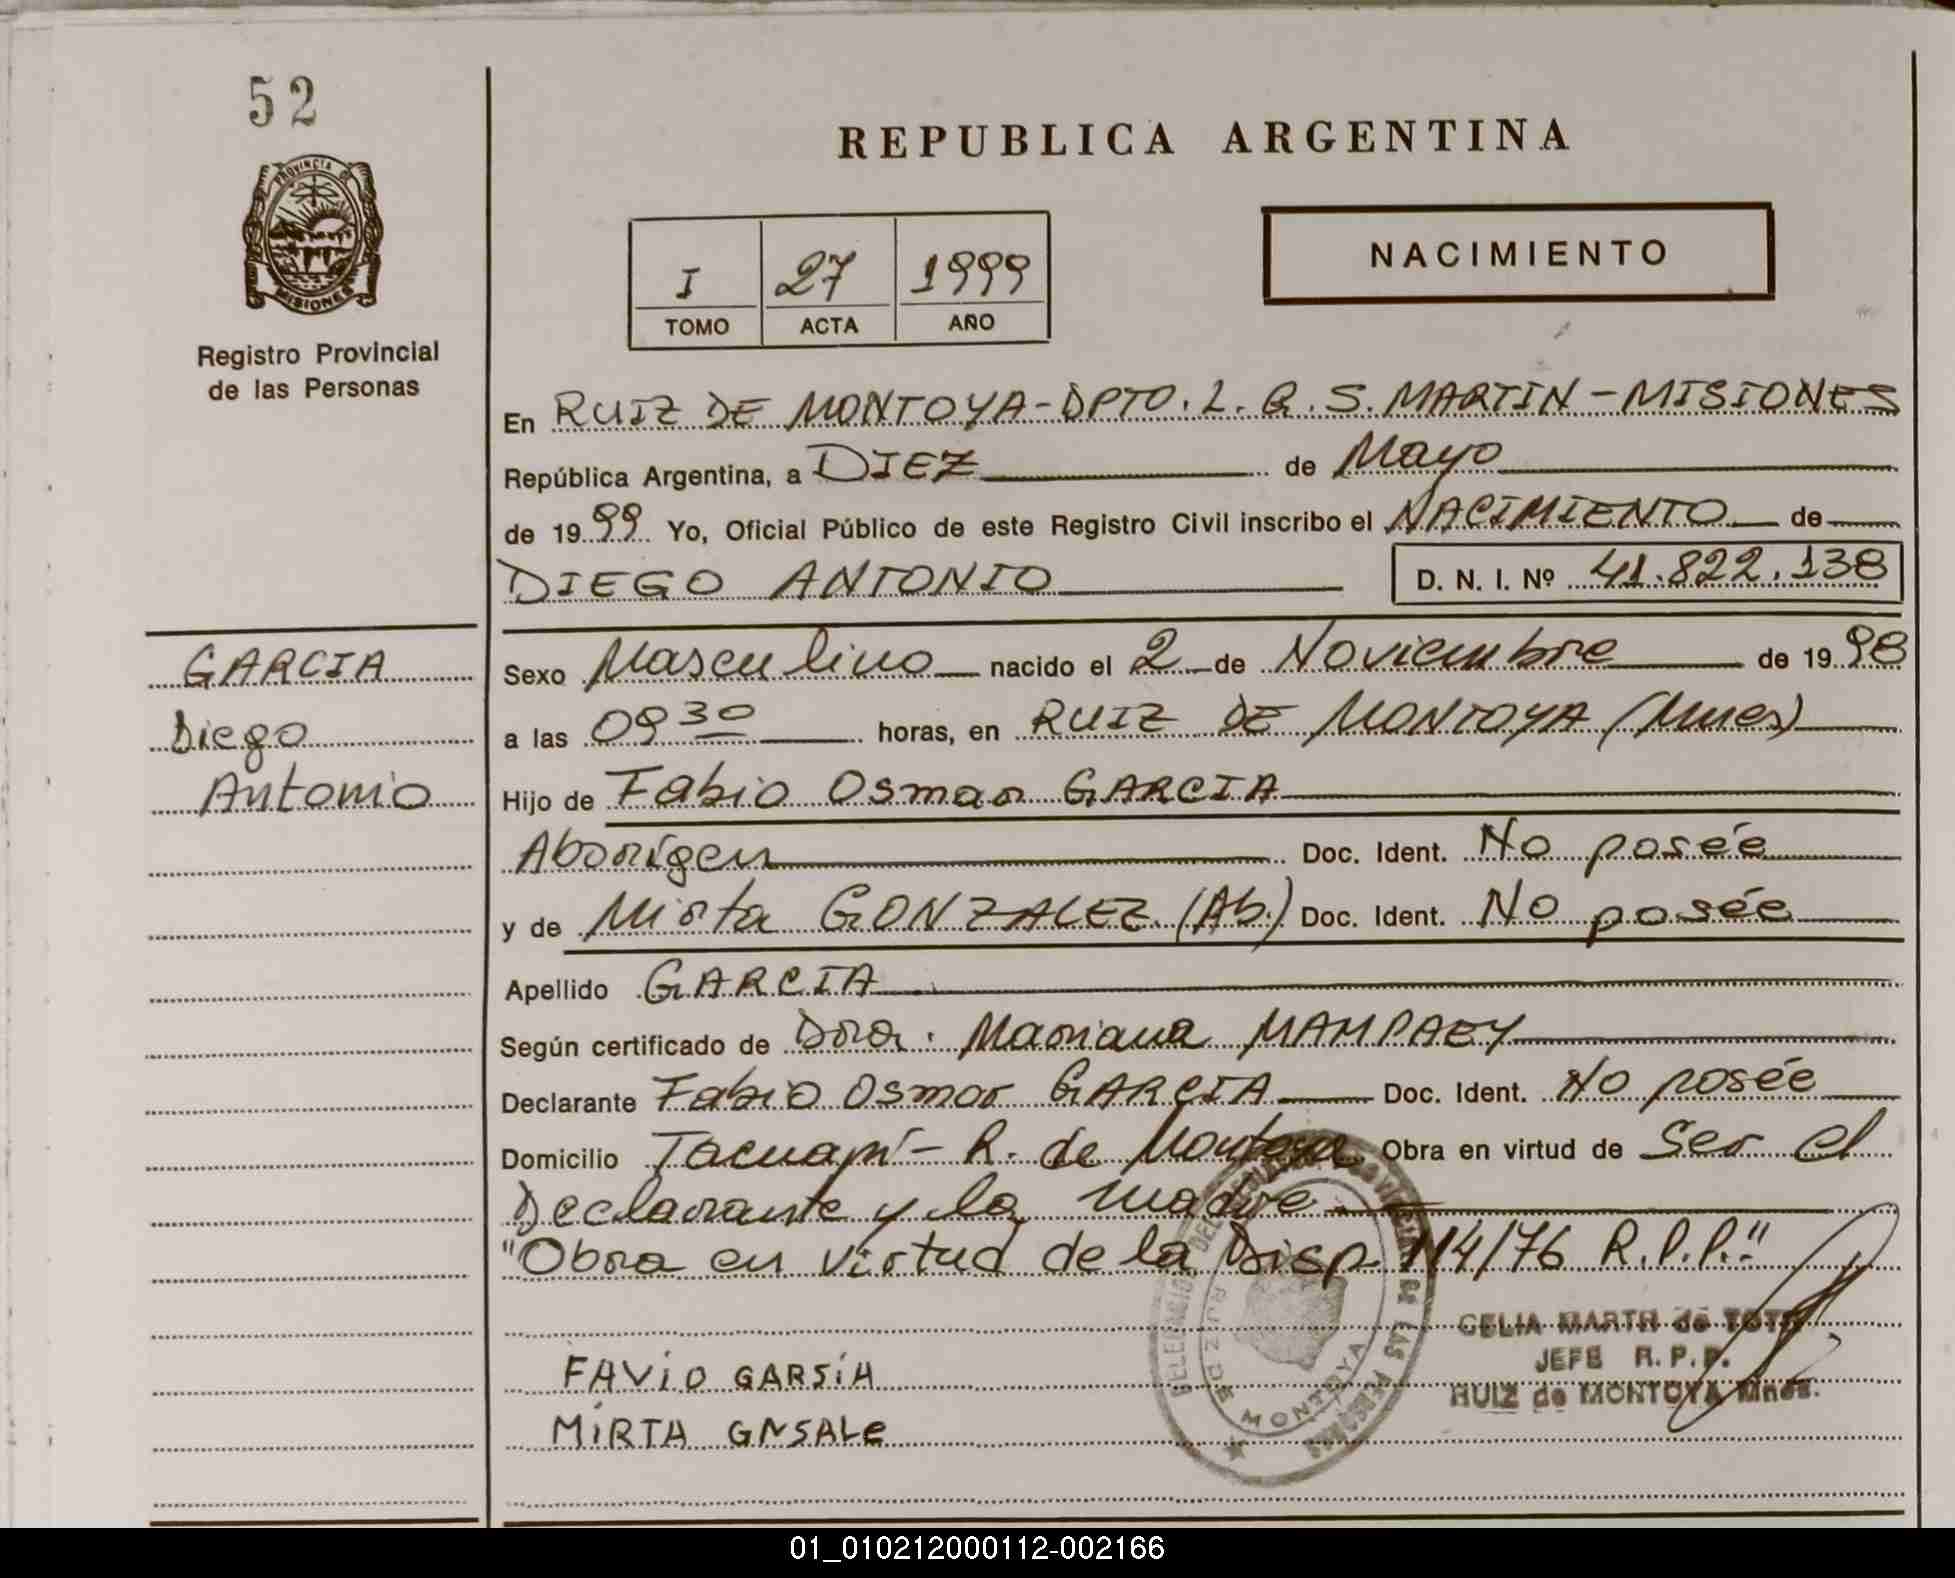 52
PROVINCIA DE
MISIONES
Registro Provincial
de las Personas
REPUBLICA ARGENTINA
I 27 1999
TOMO ACTA AÑO
NACIMIENTO
En RUIZ DE MONTOYA-DPTO. L. G. S. MARTIN - MISIONES
República Argentina, a DIEZ de Mayo
de 1999 Yo, Oficial Público de este Registro Civil inscribo el NACIMIENTO de
DIEGO ANTONIO D. N. I. Nº 41.822.138
GARCIA
Diego
Antonio
Sexo Masculino nacido el 2 de Noviembre de 1998
a las 0930 horas, en RUIZ DE MONTOYA (Mnes)
Hijo de Fabio Osmar GARCIA
Aborígen Doc. Ident. No posée
y de Mirta GONZALEZ (Ab.) Doc. Ident. No posée
Apellido GARCIA
Según certificado de Dra. Mariana MAMPAEY
Declarante Fabio Osmar GARCIA Doc. Ident. No posée
Domicilio Tacuapí - R. de Montoya Obra en virtud de Ser el
Declarante y la madre.
"Obra en virtud de la Disp. 114/76 R.P.P."
FAViO GARSiA
MiRTA GNSALe
DE MONTOYA
CELIA de
JEFE R.P.P.
RUIZ de MONTOYA Mnes.
01_010212000112-002166